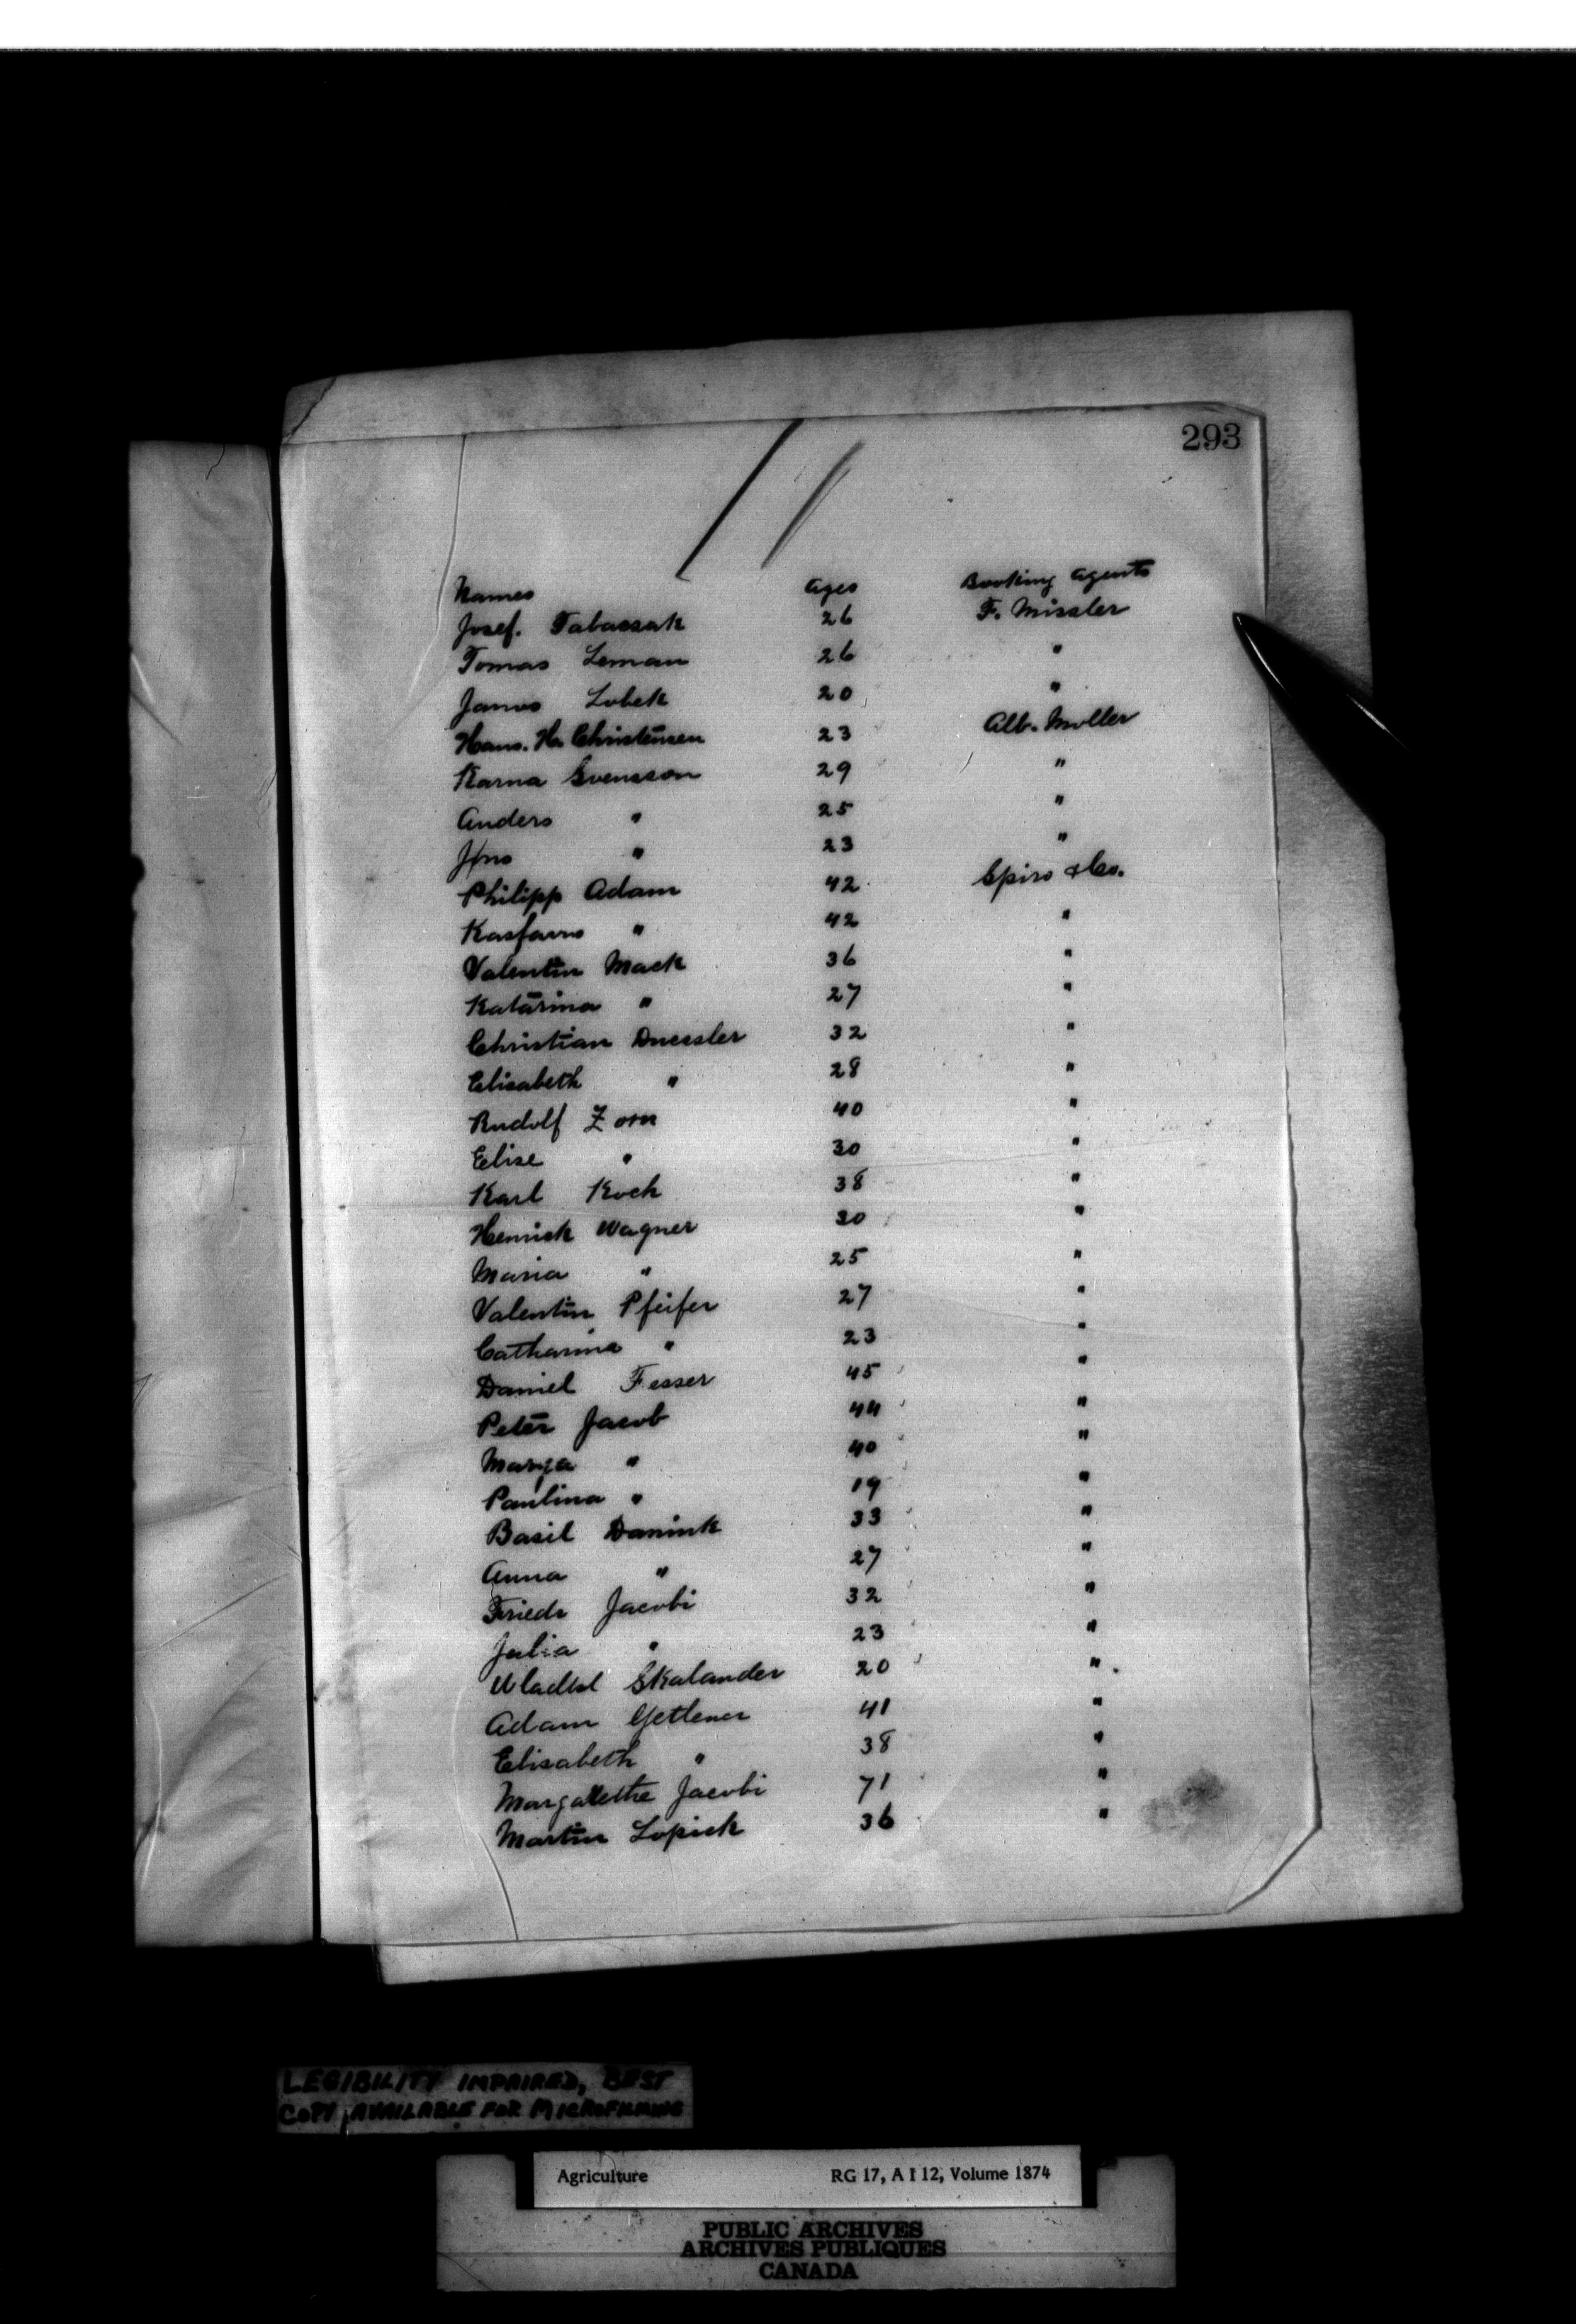 293
Names Ages Booking Agents
Josef. Tabaszak 26 F. Missler
Tomas Leman 26 "
Janos Lobek 20 "
Hans. H. Christensen 23 Alb. Moller
Karna Svensson 29 "
Anders " 25 "
Jns " 23 "
Philipp Adam 42 Spiro & Co.
" 42 "
Valentin Mack 36 "
Katarina " 27 "
Christian Duessler 32 "
Elisabeth " 28 "
Rudolf Zorn 40 "
Elise " 30 "
Karl Koch 38 "
Henrich Wagner 30 "
Maria " 25 "
Valentin Pfeifer 27 "
Catharina " 23 "
Daniel Fesser 45 "
Peter Jacob 44 "
Marga " 40 "
Paulina " 19 "
Basil Daniuk 33 "
Anna " 27 "
Friedr Jacobi 32 "
Julia " 23 "
Skalander 20 "
Adam Getlener 41 "
Elisabeth " 38 "
Margarethe Jacobi 71 "
Martin Lopich 36 "
LEGIBILITY IMPAIRED, BEST
COPY AVAILABLE FOR MICROFILMING
Agriculture RG 17, A I 12, Volume 1874
PUBLIC ARCHIVES
ARCHIVES PUBLIQUES
CANADA